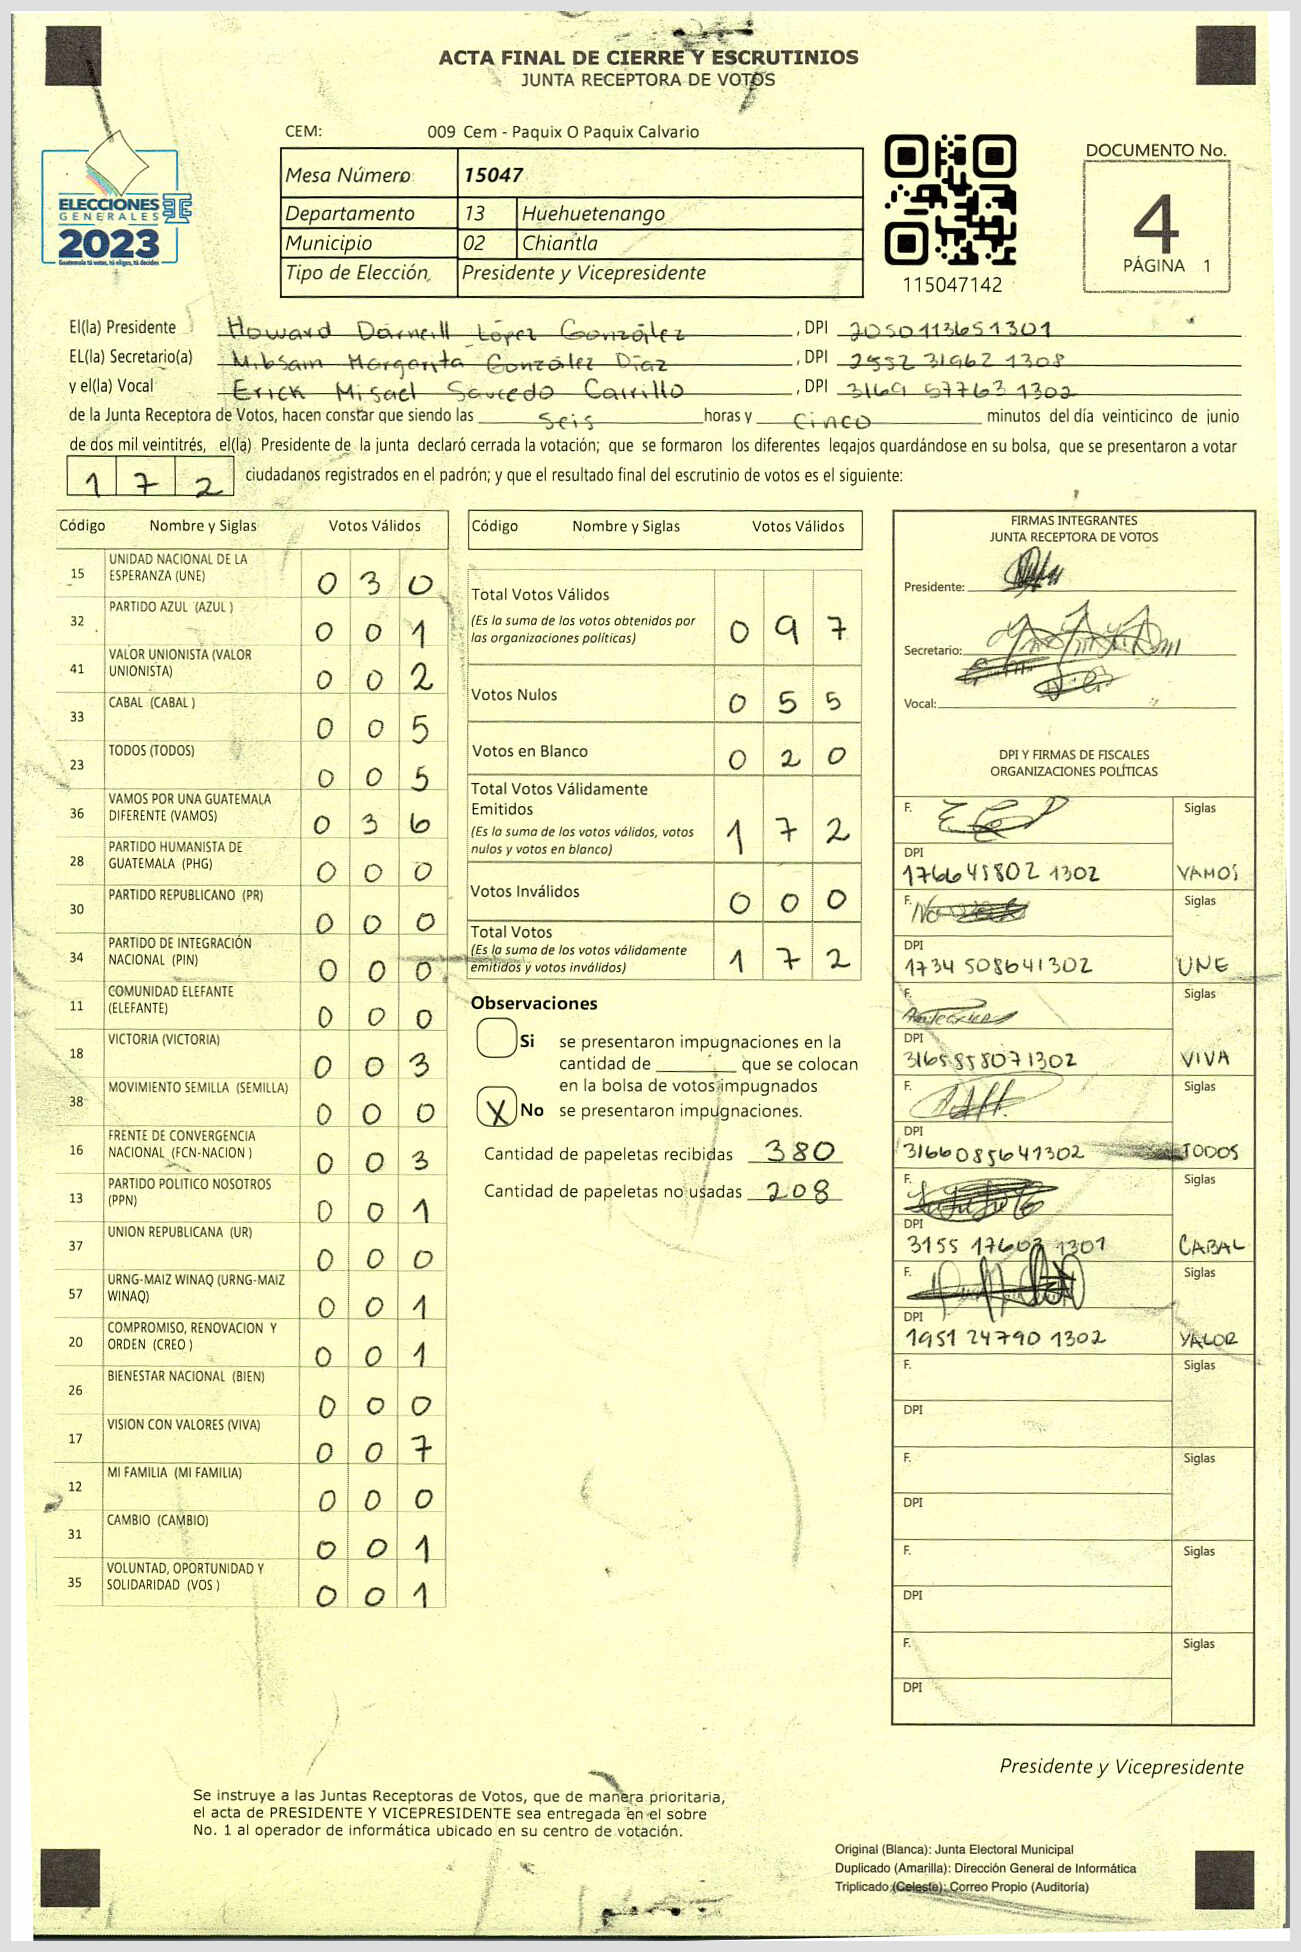 ACTA FINAL DE CIERRE Y ESCRUTINIOS
JUNTA RECEPTORA DE VOTOS
CEM: 009 Cem - Paquix O Paquix Calvario
ELECCIONES
GENERALES
2023
Guatemala tú votas, tú eliges, tú decides
Mesa Número: 15047
Departamento 13 Huehuetenango
Municipio 02 Chiantla
Tipo de Elección, Presidente y Vicepresidente
115047142
DOCUMENTO No.
4
PÁGINA 1
El(la) Presidente Howard Darnell López González, DPI 2050113651301
EL(la) Secretario(a) Mibsam Margarita González Díaz, DPI 2552 31962 1308
y el(la) Vocal Erick Misael Saucedo Carrillo, DPI 3169 57763 1302
de la Junta Receptora de Votos, hacen constar que siendo las Seis horas y cinco minutos del día veinticinco de junio
de dos mil veintitrés, el(la) Presidente de la junta declaró cerrada la votación; que se formaron los diferentes legajos quardándose en su bolsa, que se presentaron a votar
172 ciudadanos registrados en el padrón; y que el resultado final del escrutinio de votos es el siguiente:
Código Nombre y Siglas Votos Válidos
15 UNIDAD NACIONAL DE LA ESPERANZA (UNE) 0 3 0
32 PARTIDO AZUL (AZUL ) 0 0 1
41 VALOR UNIONISTA (VALOR UNIONISTA) 0 0 2
33 CABAL (CABAL ) 0 0 5
23 TODOS (TODOS) 0 0 5
36 VAMOS POR UNA GUATEMALA DIFERENTE (VAMOS) 0 3 6
28 PARTIDO HUMANISTA DE GUATEMALA (PHG) 0 0 0
30 PARTIDO REPUBLICANO (PR) 0 0 0
34 PARTIDO DE INTEGRACIÓN NACIONAL (PIN) 0 0 0
11 COMUNIDAD ELEFANTE (ELEFANTE) 0 0 0
18 VICTORIA (VICTORIA) 0 0 3
38 MOVIMIENTO SEMILLA (SEMILLA) 0 0 0
16 FRENTE DE CONVERGENCIA NACIONAL (FCN-NACION ) 0 0 3
13 PARTIDO POLITICO NOSOTROS (PPN) 0 0 1
37 UNION REPUBLICANA (UR) 0 0 0
57 URNG-MAIZ WINAQ (URNG-MAIZ WINAQ) 0 0 1
20 COMPROMISO, RENOVACION Y ORDEN (CREO ) 0 0 1
26 BIENESTAR NACIONAL (BIEN) 0 0 0
17 VISION CON VALORES (VIVA) 0 0 7
12 MI FAMILIA (MI FAMILIA) 0 0 0
31 CAMBIO (CAMBIO) 0 0 1
35 VOLUNTAD, OPORTUNIDAD Y SOLIDARIDAD (VOS ) 0 0 1
Código Nombre y Siglas Votos Válidos
Total Votos Válidos 0 9 7
(Es la suma de los votos obtenidos por
las organizaciones políticas)
Votos Nulos 0 5 5
Votos en Blanco 0 2 0
Total Votos Válidamente
Emitidos 1 7 2
(Es la suma de los votos válidos, votos
nulos y votos en blanco)
Votos Inválidos 0 0 0
Total Votos 1 7 2
(Es la suma de los votos válidamente
emitidos y votos inválidos)
Observaciones
Si se presentaron impugnaciones en la
cantidad de ________ que se colocan
en la bolsa de votos impugnados
X No se presentaron impugnaciones.
Cantidad de papeletas recibidas 380
Cantidad de papeletas no usadas 208
FIRMAS INTEGRANTES
JUNTA RECEPTORA DE VOTOS
Presidente:
Secretario:
Vocal:
DPI Y FIRMAS DE FISCALES
ORGANIZACIONES POLÍTICAS
F. Siglas
DPI
1766 45802 1302 VAMOS
F. Siglas
DPI
1734 508641302 UNE
F. Siglas
DPI
3165858071302 VIVA
F. Siglas
DPI
3166085641302 TODOS
F. Siglas
DPI
3155 17603 1301 CABAL
F. Siglas
DPI
1951 24790 1302 VALOR
F. Siglas
DPI
F. Siglas
DPI
F. Siglas
DPI
F. Siglas
DPI
Presidente y Vicepresidente
Se instruye a las Juntas Receptoras de Votos, que de manera prioritaria,
el acta de PRESIDENTE Y VICEPRESIDENTE sea entregada en el sobre
No. 1 al operador de informática ubicado en su centro de votación.
Original (Blanca): Junta Electoral Municipal
Duplicado (Amarilla): Dirección General de Informática
Triplicado (Celeste): Correo Propio (Auditoría)